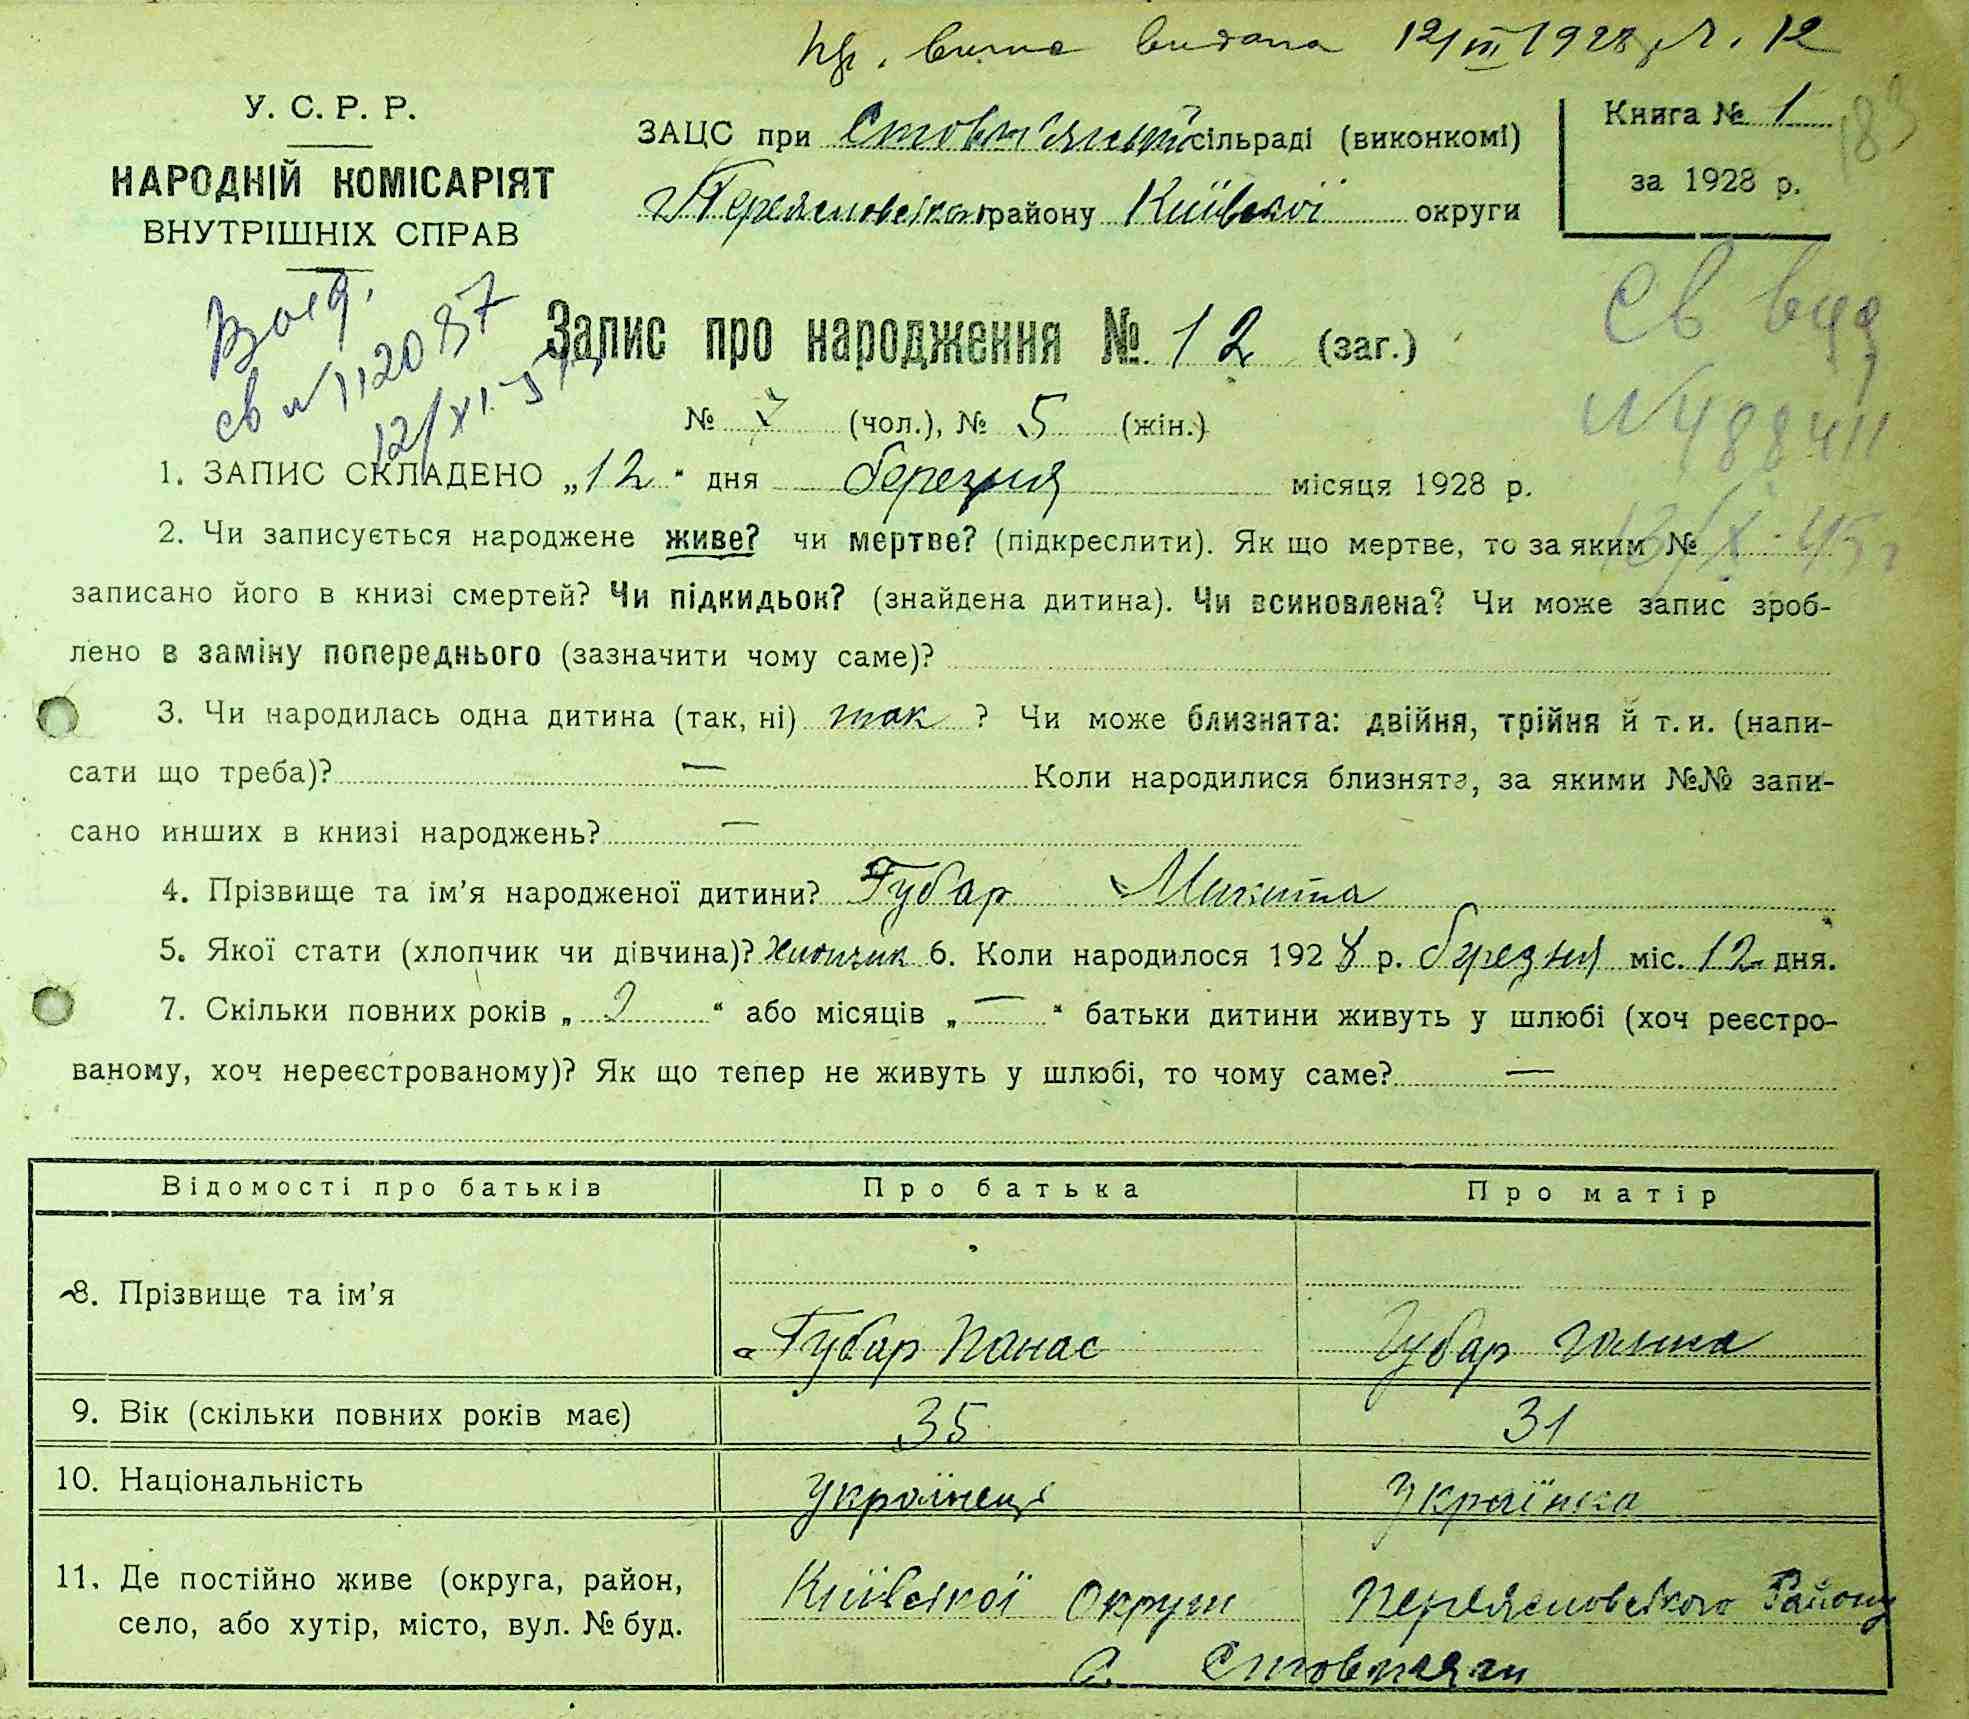 видана 12/III 1928 р. №. 12
У. С. Р. Р.
НАРОДНІЙ КОМІСАРІЯТ
ВНУТРІШНІХ СПРАВ
ЗАЦС при Стовп'янській сільраді (виконкомі)
Переяславського району Київської округи
Книга № 1
за 1928 р.
183
св №
12/XI
Св вид
N 488411
13/X - 45 г
Запис про народження № 12 (заг.)
№ 7 (чол.), № 5 (жін.)
1. ЗАПИС СКЛАДЕНО „12“ дня березня місяця 1928 р.
2. Чи записується народжене живе? чи мертве? (підкреслити). Як що мертве, то за яким №
записано його в книзі смертей? Чи підкидьок? (знайдена дитина). Чи всиновлена? Чи може запис зроб-
лено в заміну попереднього (зазначити чому саме)?
3. Чи народилась одна дитина (так, ні) так ? Чи може близнята: двійня, трійня й т. и. (напи-
сати що треба)? — Коли народилися близнята, за якими №№ запи-
сано инших в книзі народжень? —
4. Прізвище та ім’я народженої дитини? Губар Микита
5. Якої стати (хлопчик чи дівчина)? Хлопчик 6. Коли народилося 1928 р. березня міс. 12 дня.
7. Скільки повних років „ 2 “ або місяців „ — “ батьки дитини живуть у шлюбі (хоч реєстро-
ваному, хоч нереєстрованому)? Як що тепер не живуть у шлюбі, то чому саме? —
Відомості про батьків Про батька Про матір
8. Прізвище та ім’я Губар Панас Губар Ганна
9. Вік (скільки повних років має) 35 31
10. Національність Українець Українка
11. Де постійно живе (округа, район, Київської Округи Переяславського Району
село, або хутір, місто, вул. № буд. С. Стовпяги